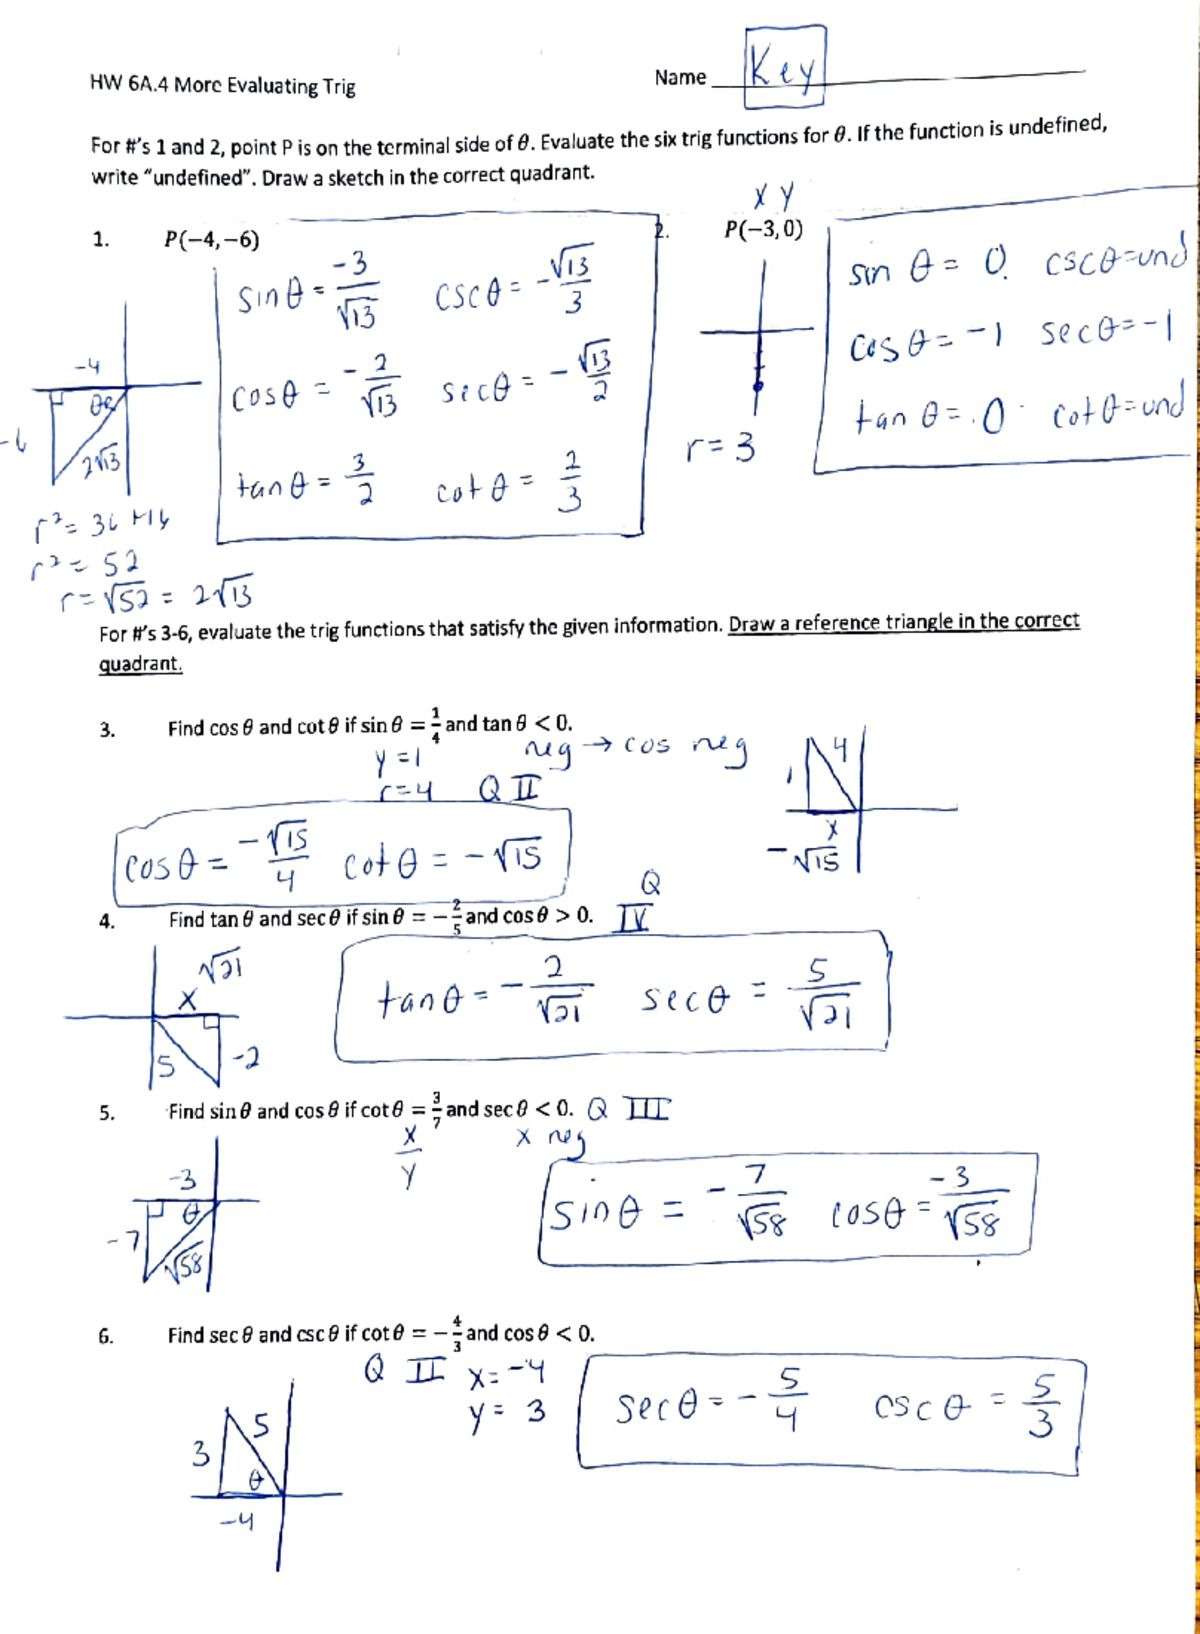 HW 6A.4 More Evaluating Trig
Name Key
For #'s 1 and 2, point P is on the terminal side of θ. Evaluate the six trig functions for θ. If the function is undefined,
write "undefined". Draw a sketch in the correct quadrant.
1. P(−4,−6)
sin θ = -3/√13 csc θ = -√13/3
cos θ = -2/√13 sec θ = -√13/2
tan θ = 3/2 cot θ = 2/3
-4
θR
-6
2√13
r² = 36+16
r² = 52
r = √52 = 2√13
x y
2. P(−3,0)
r = 3
sin θ = 0 csc θ = und
cos θ = -1 sec θ = -1
tan θ = 0 cot θ = und
For #'s 3-6, evaluate the trig functions that satisfy the given information. Draw a reference triangle in the correct
quadrant.
3. Find cos θ and cot θ if sin θ = 1/4 and tan θ < 0.
y = 1 neg → cos neg
r = 4 Q II
4
1
x
-√15
cos θ = -√15/4 cot θ = -√15
4. Find tan θ and sec θ if sin θ = −2/5 and cos θ > 0. Q IV
√21
x
5 -2
tan θ = -2/√21 sec θ = 5/√21
5. Find sin θ and cos θ if cot θ = 3/7 and sec θ < 0. Q III
x/y x neg
-3
θ
-7
√58
sin θ = -7/√58 cos θ = -3/√58
6. Find sec θ and csc θ if cot θ = −4/3 and cos θ < 0.
Q II x = -4
y = 3
sec θ = -5/4 csc θ = 5/3
5
3
θ
-4